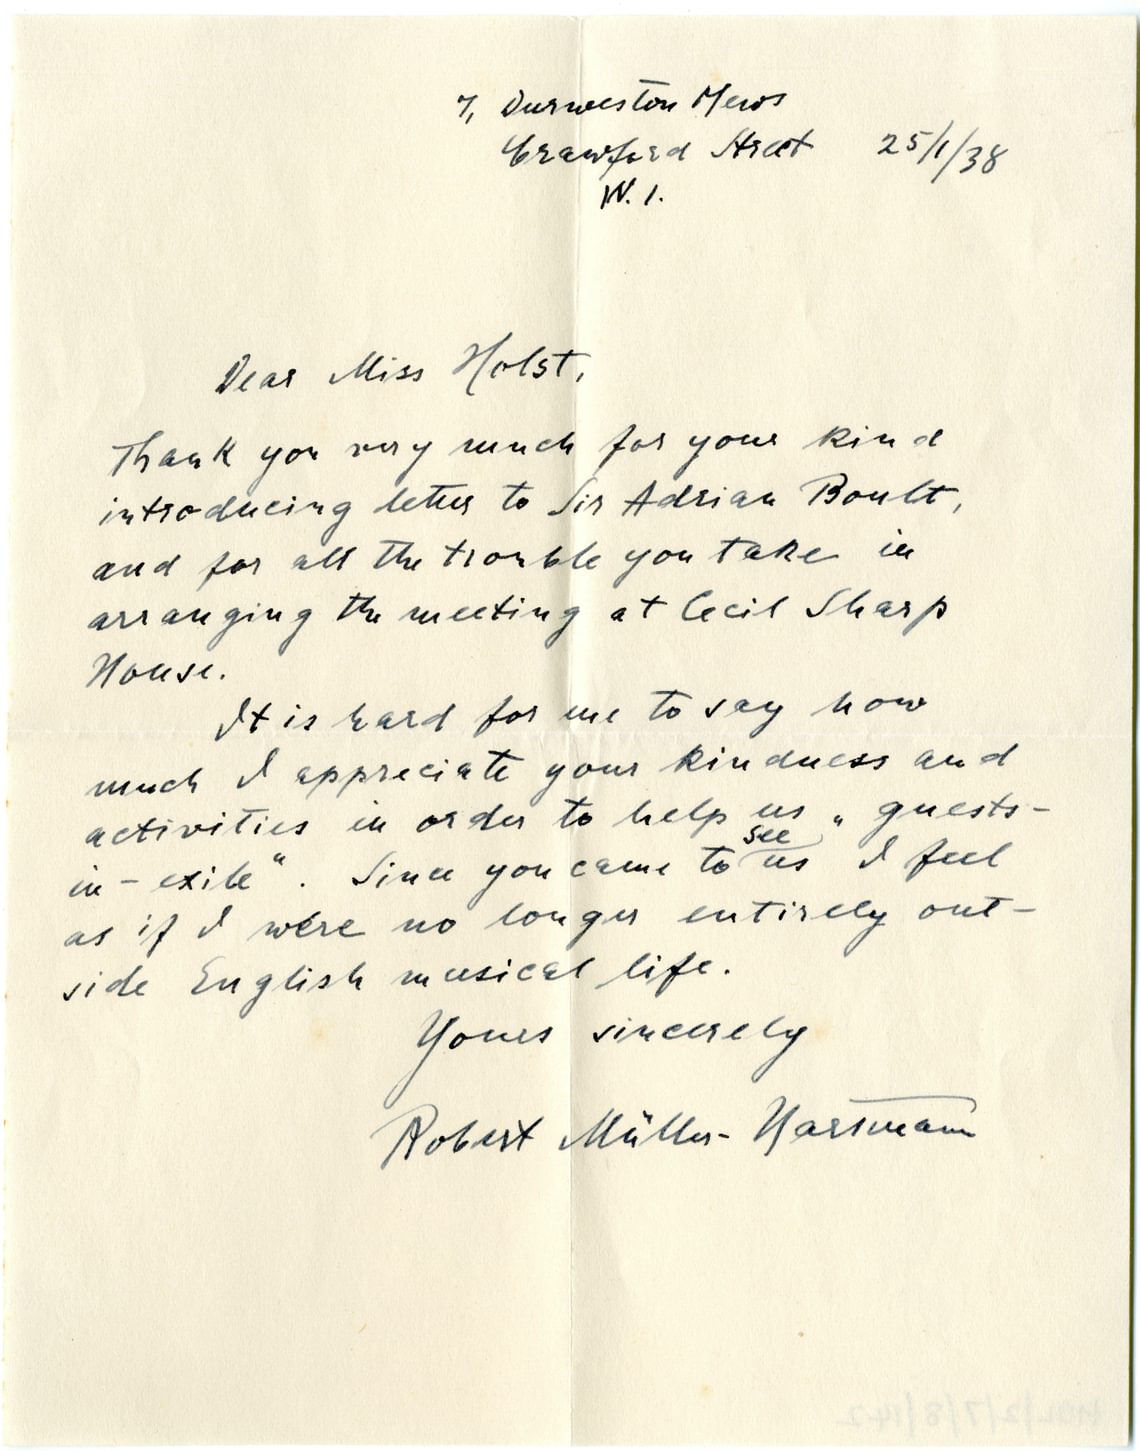 7, Durweston Mews
Crawford Street 25/1/38
W. 1.
Dear Miss Holst,
Thank you very much for your kind
introducing letter to Sir Adrian Boult,
and for all the trouble you take in
arranging the meeting at Cecil Sharp
House.
It is hard for me to say how
much I appreciate your kindness and
activities in order to help us „guests-
in-exile“. Since you came to see us I feel
as if I were no longer entirely out-
side English musical life.
Yours sincerely
Robert Müller-Hartmann
HOL/2/7/8/142